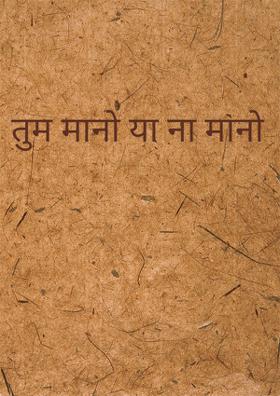 तुम मानो या ना मानो